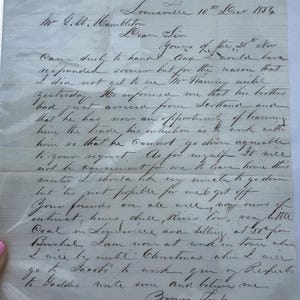 Louisville 10th Dec 1854
Mr G. W. Hambleton
Dear Sir
Yours of the 31st Nor
Came duly to hand. And would have
responded sooner but for the reason that
I did not get to see Mr Kenny until
yesterday. He informed me that his brother
had just arrived from Scotland and
that he has now an opportunity of learning
him the trade his intention is to work with
him so that he cannot go down agreeable
to your request As for myself it will
not be convenient for me to leave home this
winter I should like very much to go down
but its not possible for me to get off
Your friends are all well, no news of
interest, times, dull, River low, very little
Coal in Louisville and selling at 30 cts per
Bushel I am now at work in town where
I will be until Christmas when I will
go to Jacob to work, give my Respects
to Laddes write soon and believe me
Yours